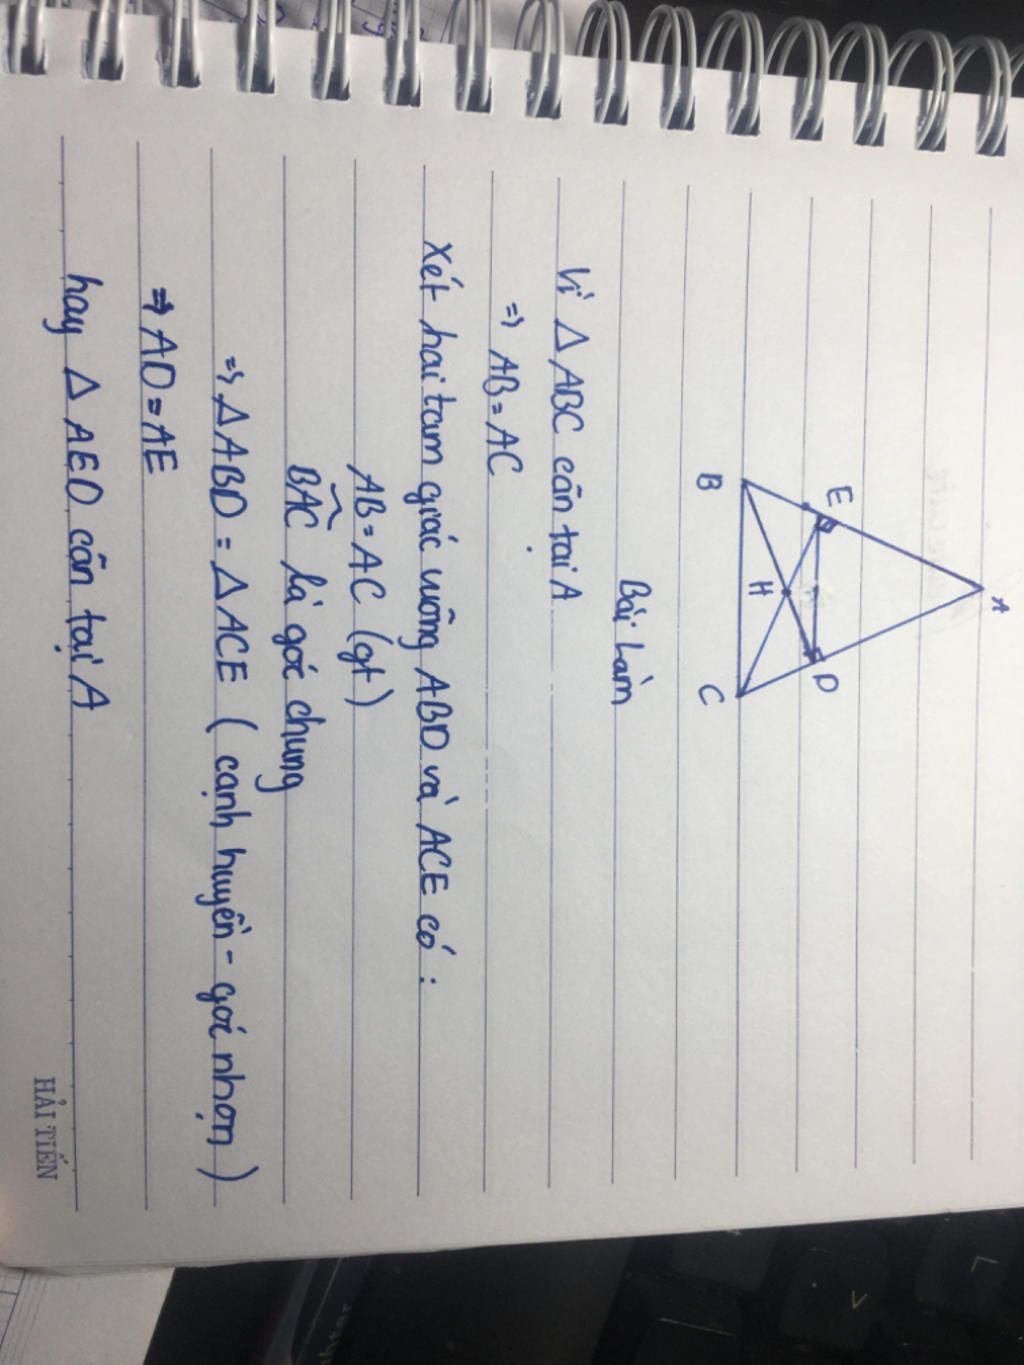 A
E
D
H
B
C
Bài Làm
Vì △ ABC cân tại A
=> AB = AC
Xét hai tam giác vuông ABD và ACE có :
AB = AC (gt)
BAC là góc chung
=> △ ABD = △ ACE ( cạnh huyền - góc nhọn )
=> AD = AE
hay △ AED cân tại A
HẢI TIẾN